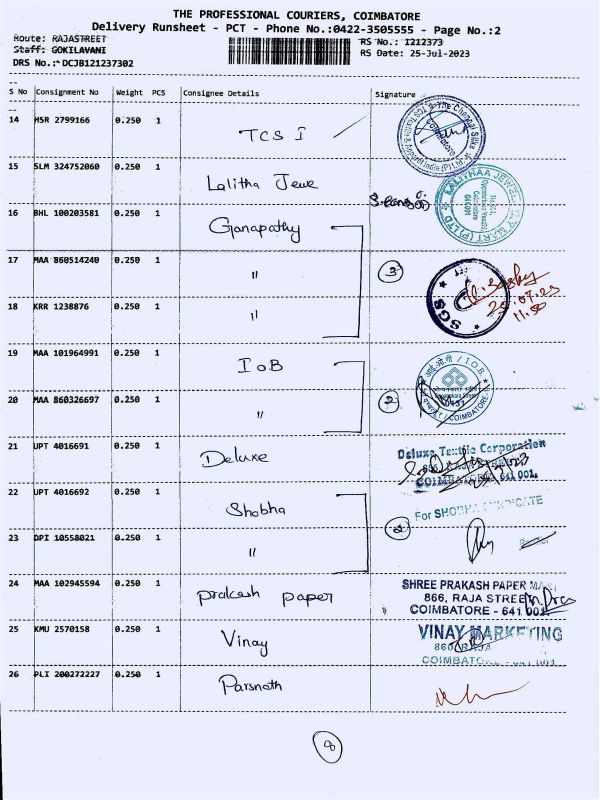 THE PROFESSIONAL COURIERS, COIMBATORE
Delivery Runsheet - PCT - Phone No.:0422-3505555 - Page No.:2
Route: RAJASTREET
Staff: GOKILAVANI
DRS No.: DCJB121237302
RS No.: 1212373
RS Date: 25-Jul-2023
S No Consignment No Weight PCS Consignee Details Signature
14 HSR 2799166 0.250 1 TCS I
15 SLM 324752060 0.250 1 Lalitha Jewe
16 BHL 100203581 0.250 1 Ganapathy
17 MAA 860514240 0.250 1 " 3
SGS 25.07.23
18 KRR 1238876 0.250 1 "
19 MAA 101964991 0.250 1 IOB
I.O.B.
20 MAA 860326697 0.250 1 " 2
COIMBATORE
21 UPT 4016691 0.250 1 Deluxe
Deluxe Textile Corporation
COIMBATORE 641 001.
22 UPT 4016692 0.250 1 Shobha
For SHOBHA SYNDICATE
23 DPI 10558021 0.250 1 " 2
24 MAA 102945594 0.250 1 prakash paper
SHREE PRAKASH PAPER
866, RAJA STREET
COIMBATORE - 641 001.
25 KMU 2570158 0.250 1 Vinay
VINAY MARKETING
26 PLI 200272227 0.250 1 Parsnath
8